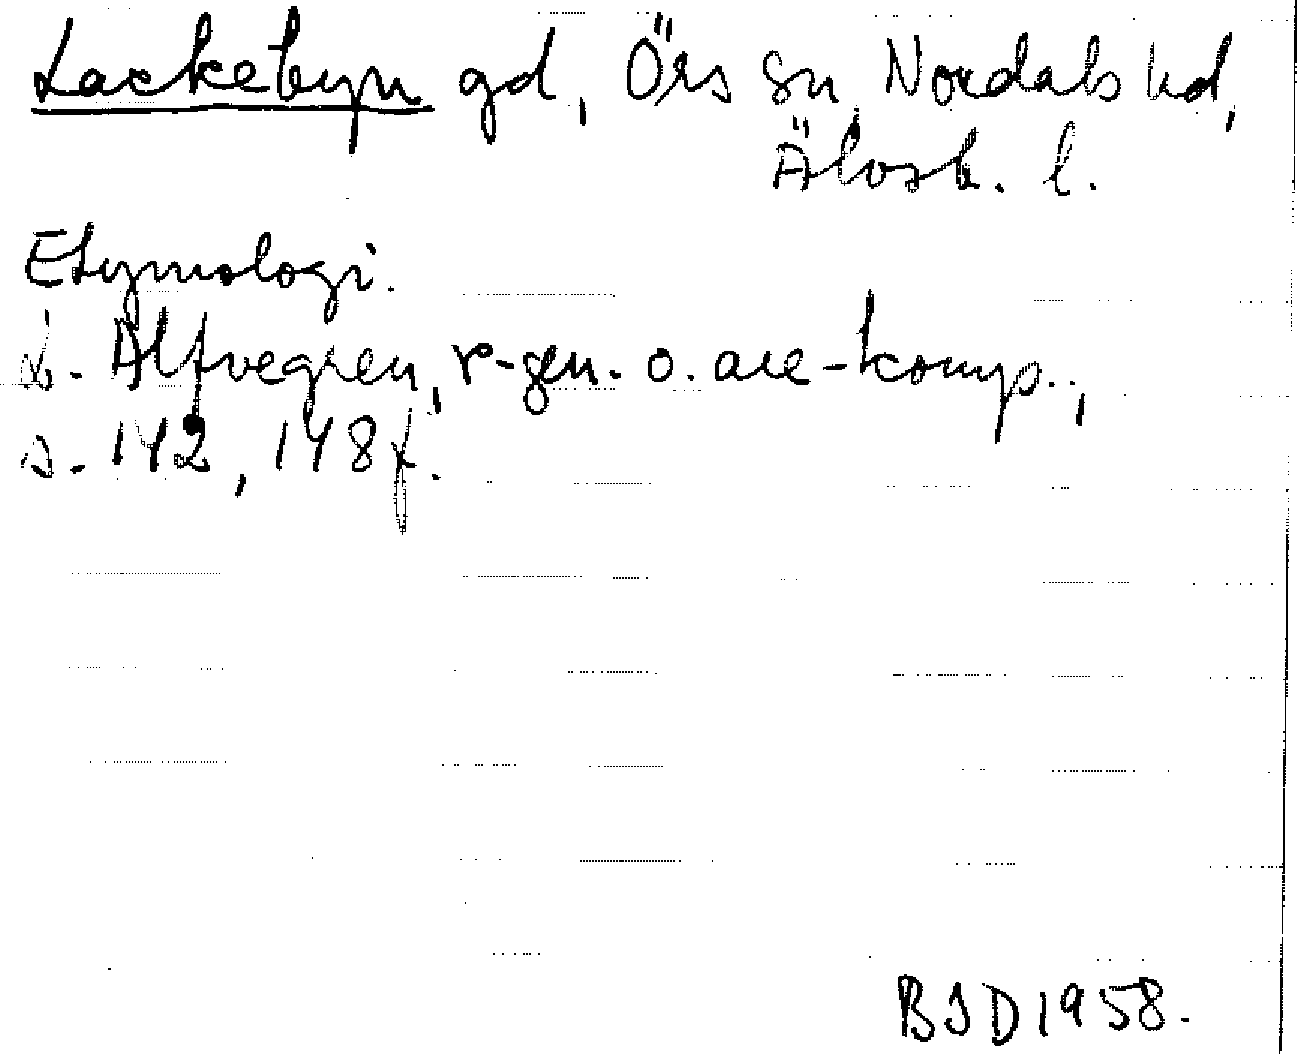 Lackebyn gd, Örs sn Nordals hd,
Älvsb. l.
Etymologi.
L. Alfvegren, r-gen. o. are-komp.,
s. 142, 148f.
BSD 1958.